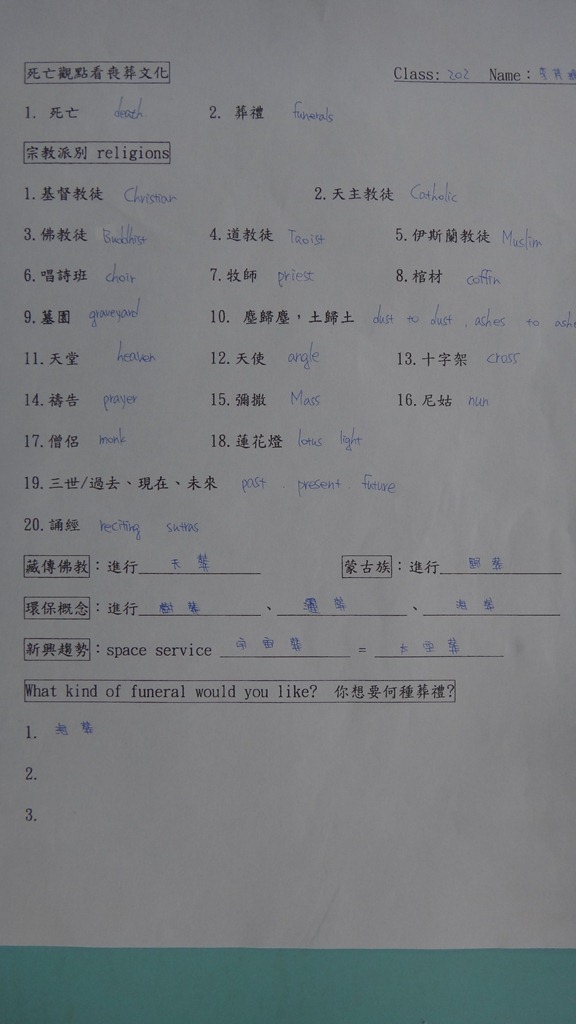 死亡觀點看喪葬文化 Class: 202 Name:
1. 死亡 death 2. 葬禮 funerals
宗教派別 religions
1.基督教徒 Christian 2.天主教徒 Catholic
3.佛教徒 Buddhist 4.道教徒 Taoist 5.伊斯蘭教徒 Muslim
6.唱詩班 choir 7.牧師 priest 8.棺材 coffin
9.墓園 graveyard 10. 塵歸塵,土歸土 dust to dust , ashes to ashe
11.天堂 heaven 12.天使 angle 13.十字架 cross
14.禱告 prayer 15.彌撒 Mass 16.尼姑 nun
17.僧侶 monk 18.蓮花燈 lotus light
19.三世/過去、現在、未來 past . present . future
20.誦經 reciting sutras
藏傳佛教:進行 天葬 蒙古族:進行 葬
環保概念:進行 樹葬 、 葬 、 海葬
新興趨勢:space service 宇宙葬 = 太空葬
What kind of funeral would you like? 你想要何種葬禮?
1. 海葬
2.
3.